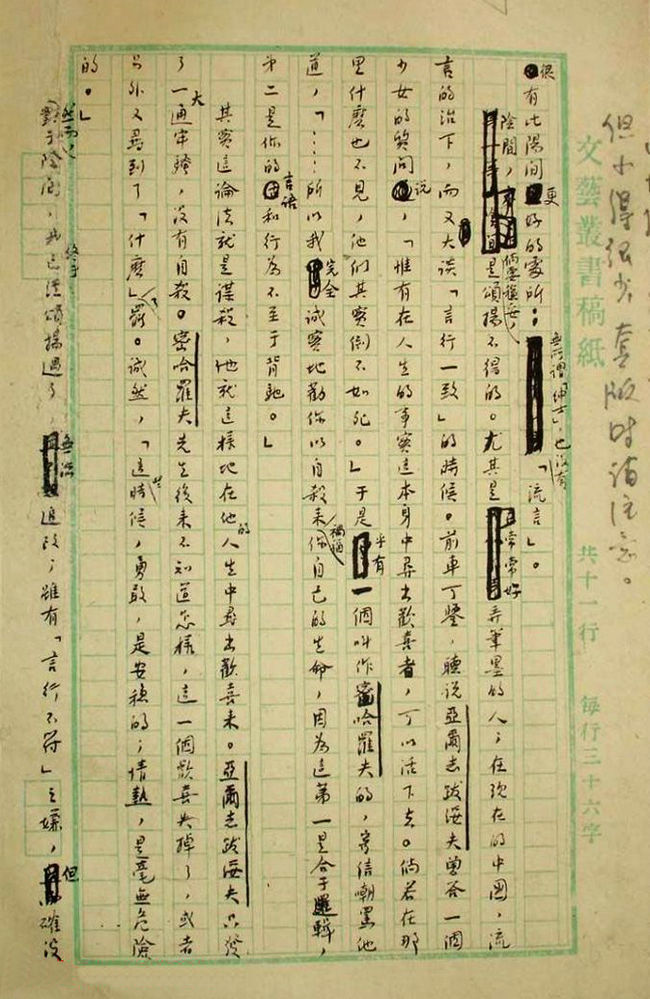 文藝叢書稿紙
共十一行 每行三十六字
很有比陽間更好的處所：無所謂「紳士」，也沒有「流言」。
陰間，倘要穩妥，是頌揚不得的。尤其是常常好弄筆墨的人，在現在的中國，流
言的治下，而又大談「言行一致」的時候。前車可鑒，聽說亞爾志跋綏夫曾答一個
少女的質問說，「惟有在人生的事實這本身中尋出歡喜者，可以活下去。倘若在那
里什麼也不見，他們其實倒不如死。」于是乎有一個叫作密哈羅夫的，寄信嘲罵他
道，「……所以我完全誠實地勸你以自殺來禍福你自己的生命，因為這第一是合于邏輯，
第二是你的言語和行為不至于背馳。」
其實這論法就是謀殺，他就這樣地在他的人生中尋出歡喜來。亞爾志跋綏夫只發
了一大通牢騷，沒有自殺。密哈羅夫先生後來不知道怎樣，這一個歡喜失掉了，或者
另外又尋到了「什麼」了罷。誠然，「這些時候，勇敢，是安穩的；情熱，是毫無危險
的。」
然而，對于陰間，我終于已經頌揚過了，無從追改；雖有「言行不符」之嫌，但確沒